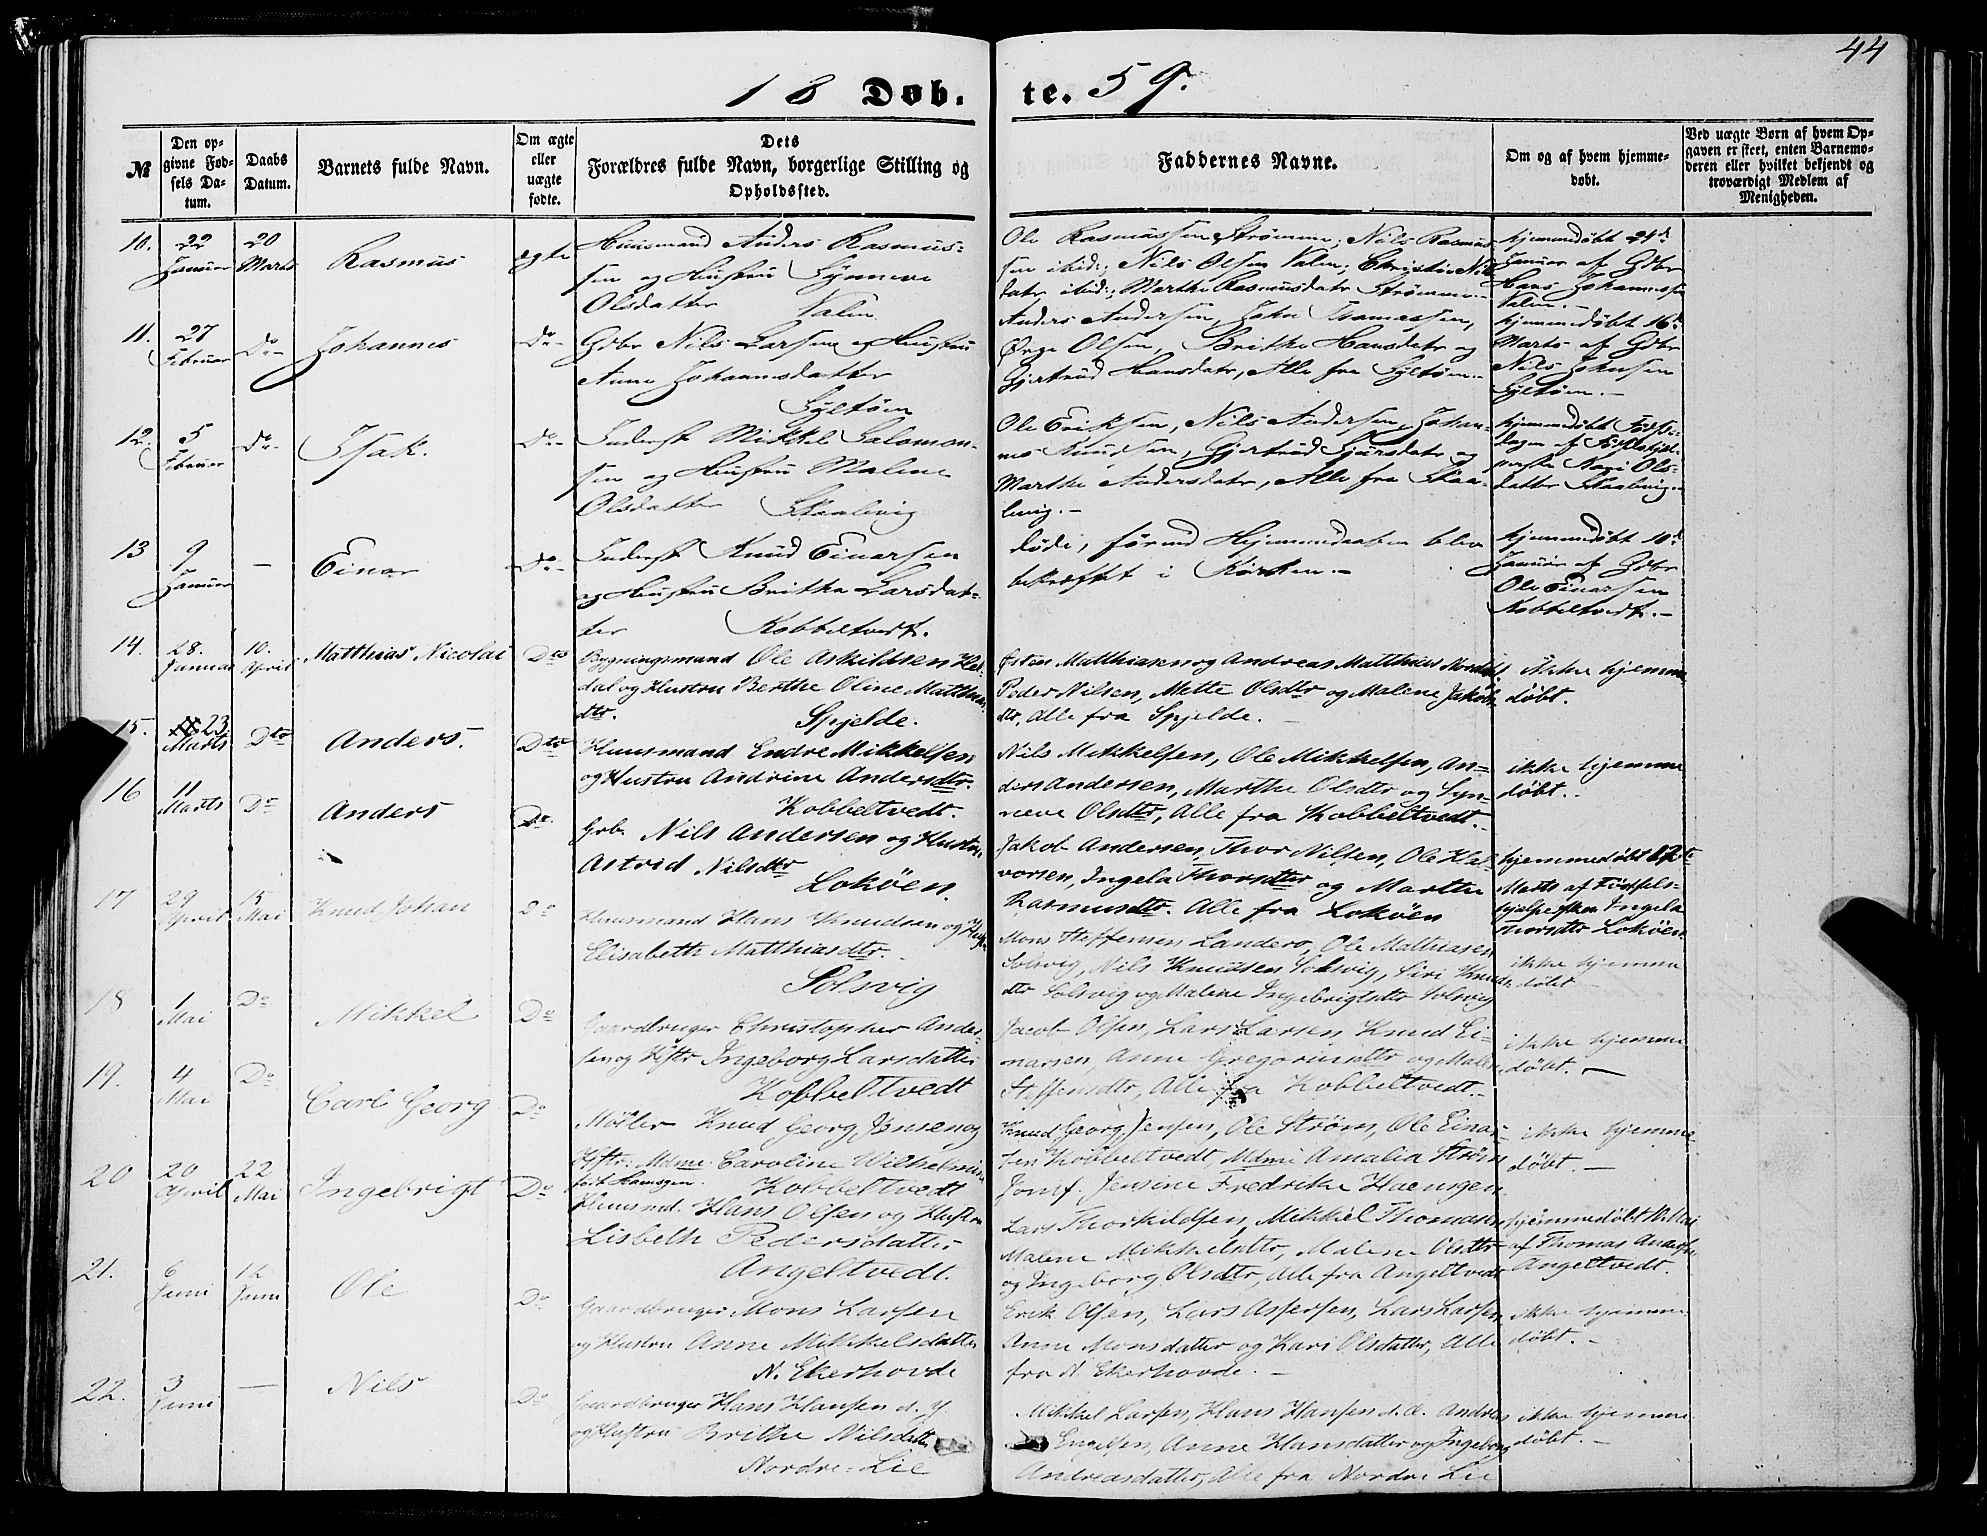 44
18 Døb. te. 59.
№
Den opgivne Fødsels Datum.
Daabs Datum.
Barnets fulde Navn.
Om ægte eller uægte fødte.
Dets Forældres fulde Navn, borgerlige Stilling og Opholdssted.
Faddernes Navne.
Om og af hvem hjemmedøbt.
Ved uægte Børn af hvem Opgaven er skeet, enten Barnemoderen eller hvilket bekjendt og troværdigt Medlem af Menigheden.
10. 22 Januar 20 Marts Rasmus ægte
Huusmand Anders Rasmus-
sen og Hustru Synneve
Olsdatter Valen
Ole Rasmussen Strømme, Nils Rasmus-
sen ibid:, Nils Olsen Valen, Christie Nils
datr ibid:, Marthe Rasmusdatr Strømme.
hjemmedøbt 24de
Januar af Gdbr
Hans Johannessen
Valen.
11. 27 Februar Do Johannes Do
Gdbr Nils Larsen og Hustru
Anna Johannesdatter
Syltøen
Anders Andersen, John Thomassen,
Ørge Olsen, Brithe Hansdatr og
Gjertrud Hansdatr, Alle fra Syltøen.
hjemmedøbt 16de
Marts af Gdbr
Nils Johnsen
Syltøen.
12. 5 Februar Do Isak. Do
Inderst Mikkel Salomon-
sen og Hustru Malene
Olsdatter Skaalevig
Ole Eriksen, Nils Andersen, Johan-
nes Knudsen, Gjertrud Sjursdatr og
Marthe Andersdatr, Alle fra Skaa-
levig.
hjemmedøbt Fødsels-
dagen af Fødselshjæl-
perske Kari Ols-
datter Skaalevig.
13 9 Januar — Einar Do
Inderst Knud Einarsen
og Hustru Brithe Larsdat-
ter Kobbeltvedt.
døde, førend Hjemmedaaben blev
bekræftet i Kirken.
hjemmedøbt 10de
Januar af Gdbr
Ole Einarsen
Kobbeltvedt.
14. 28. Januar 10. April Matthias Nicolai Dto
Bygningsmand Ole Askildsen Hal-
dal og Hustru Berthe Oline Matthias
dtr. Spjelde.
Østen Matthiasen og Andreas Matthias
Peder Nilsen, Mette Olsdtr og Malene Jakobs
dtr, alle fra Spjelde.
ikke hjemme
døbt.
15. 23 Marts Dto Anders. Dto
Huusmand Endre Mikkelsen
og Hustru Andrine Andersdtr.
Kobbeltvedt.
Nils Mikkelsen, Ole Mikkelsen, An-
ders Andersen, Marthe Olsdtr og Syn-
neve Olsdtr, Alle fra Kobbeltvedt.
ikke hjemme
døbt.
16 11 Marts Do Anders Do
Grb. Nils Andersen og Hustru
Astrid Nilsdtr
Lokøen.
Jakob Andersen, Thor Nilsen, Ole Hal-
vorsen, Ingela Thorsdtr og Marthe
Rasmusdtr. Alle fra Lokøen
hjemmedøbt 12te
Marts af Fødsels-
hjælpersken Ingela
Thorsdtr Lokøen.
17 29 April 15 Mai Knud Johan Do
Huusmand Hans Knudsen og Hust
Elisabeth Matthiasdtr.
Solsvig
Mons Steffensen Landero, Ole Mathiasen
Solsvig, Nils Knudsen Solsvig, Siri Knuds
dtr Solsvig og Malene Ingebrigtsdtr Solsvig
ikke hjemme
døbt
18 1 Mai Do Mikkel Do
Gaardbruger Christopher Ander-
sen og Hstr Ingeborg Larsdatter
Kobbeltvedt
Jacob Olsen, Lars Larsen, Knud Ei-
narsen, Anne Gregoriusdtr og Malene
Steffensdtr, Alle fra Kobbeltvedt.
ikke hjemme-
døbt.
19. 4 Mai Do Carl Georg Do
Møller Knud Georg Jensen og
Hstr: Mdme Caroline Wilhelmine
født Hansgen. Kobbeltvedt
Knud Georg Jensen, Ole Strøm, Ole Einar-
sen Kobbeltvedt, Mdme Amalia Strøm
Jomf. Jensine Fredrike Haensgen.
ikke hjemme-
døbt.
20 20 April 22 Mai Ingebrigt Do
Huusmd. Hans Olsen og Hustru
Lisbeth Pedersdatter
Angeltvedt.
Lars Thorkildsen, Mikkel Thomasen
Malene Mikkelsdtr, Malene Olsdtr
og Ingeborg Olsdtr, Alle fra Angeltvedt
hjemmedøbt Mai
af Thomas Anders
Angeltvedt.
21. 6 Juni 12 Juni Ole Do
Gaardbruger Mons Larsen
og Hustru Anne Mikkelsdatter
N. Ekerhovde
Erik Olsen, Lars Aspersen, Lars Larsen
Anne Monsdatter og Kari Olsdatter, Alle
fra N. Ekerhovde.
ikke hjemme
døbt.
22. 3 Juni — Nils Do
Gaardbruger Hans Hansen d. y.
og Hustru Brithe Nilsdatter
Nordre-Lie
Mikkel Larsen, Hans Hansen d. æ. Andreas
Engelsen, Anne Hansdatter og Ingeborg
Andreasdatter, Alle fra Nordre Lie
ikke hjemme
døbt.